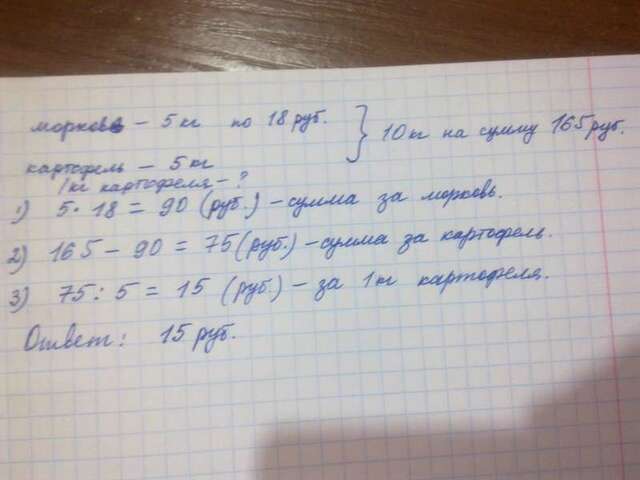 морковь – 5 кг по 18 руб. } 10 кг на сумму 165 руб.
картофель – 5 кг
1 кг картофеля – ?
1) 5 · 18 = 90 (руб.) – сумма за морковь.
2) 165 – 90 = 75 (руб.) – сумма за картофель.
3) 75 : 5 = 15 (руб.) – за 1 кг картофеля.
Ответ: 15 руб.